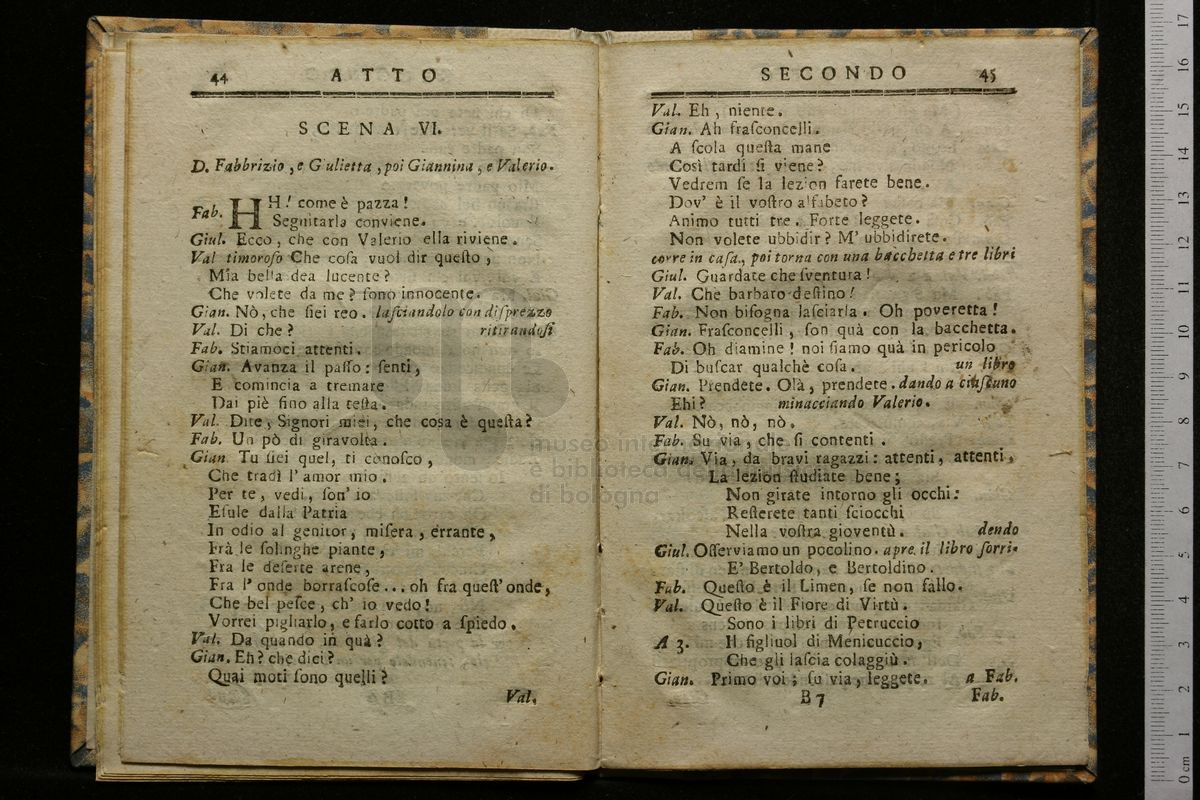 44 ATTO
SCENA VI.
D. Fabbrizio, e Giulietta, poi Giannina, e Valerio.
Fab. HH! come è pazza!
Seguitarla conviene.
Giul. Ecco, che con Valerio ella riviene.
Val timoroſo Che coſa vuol dir queſto,
Mia bella dea lucente?
Che volete da me? ſono innocente.
Gian. Nò, che ſiei reo. laſciandolo con diſprezzo
Val. Di che? ritirandoſi
Fab. Stiamoci attenti.
Gian. Avanza il paſſo: ſenti,
E comincia a tremare
Dai piè fino alla teſta.
Val. Dite, Signori miei, che coſa è queſta?
Fab. Un pò di giravolta.
Gian Tu ſiei quel, ti conoſco,
Che tradì l'amor mio.
Per te, vedi, ſon' io
Eſule dalla Patria
In odio al genitor, miſera, errante,
Frà le ſolinghe piante,
Fra le deſerte arene,
Fra l'onde borraſcoſe... oh fra queſt'onde,
Che bel peſce, ch' io vedo!
Vorrei pigliarlo, e farlo cotto a ſpiedo.
Val. Da quando in quà?
Gian. Eh? che dici?
Quai moti ſono quelli?
Val.
SECONDO 45
Val. Eh, niente.
Gian. Ah fraſconcelli.
A ſcola queſta mane
Così tardi ſi viene?
Vedrem ſe la lezion farete bene.
Dov' è il voſtro alfabeto?
Animo tutti tre. Forte leggete.
Non volete ubbidir? M' ubbidirete.
corre in caſa, poi torna con una bacchetta e tre libri
Giul. Guardate che ſventura!
Val. Che barbaro deſtino!
Fab. Non biſogna laſciarla. Oh poveretta!
Gian. Fraſconcelli, ſon quà con la bacchetta.
Fab. Oh diamine! noi ſiamo quà in pericolo
Di buſcar qualchè coſa. un libro
Gian. Prendete. Olà, prendete. dando a ciaſcuno
Ehi? minacciando Valerio.
Val. Nò, nò, nò.
Fab. Su via, che ſi contenti.
Gian. Via, da bravi ragazzi: attenti, attenti,
La lezion ſtudiate bene;
Non girate intorno gli occhi:
Reſterete tanti ſciocchi
Nella voſtra gioventù. dendo
Giul. Oſſerviamo un pocolino. apre il libro ſorri-
E' Bertoldo, e Bertoldino.
Fab. Queſto è il Limen, ſe non fallo.
Val. Queſto è il Fiore di Virtù.
Sono i libri di Petruccio
A 3. Il figliuol di Menicuccio,
Che gli laſcia colaggiù.
Gian. Primo voi; ſu via, leggete. a Fab.
B 7 Fab.